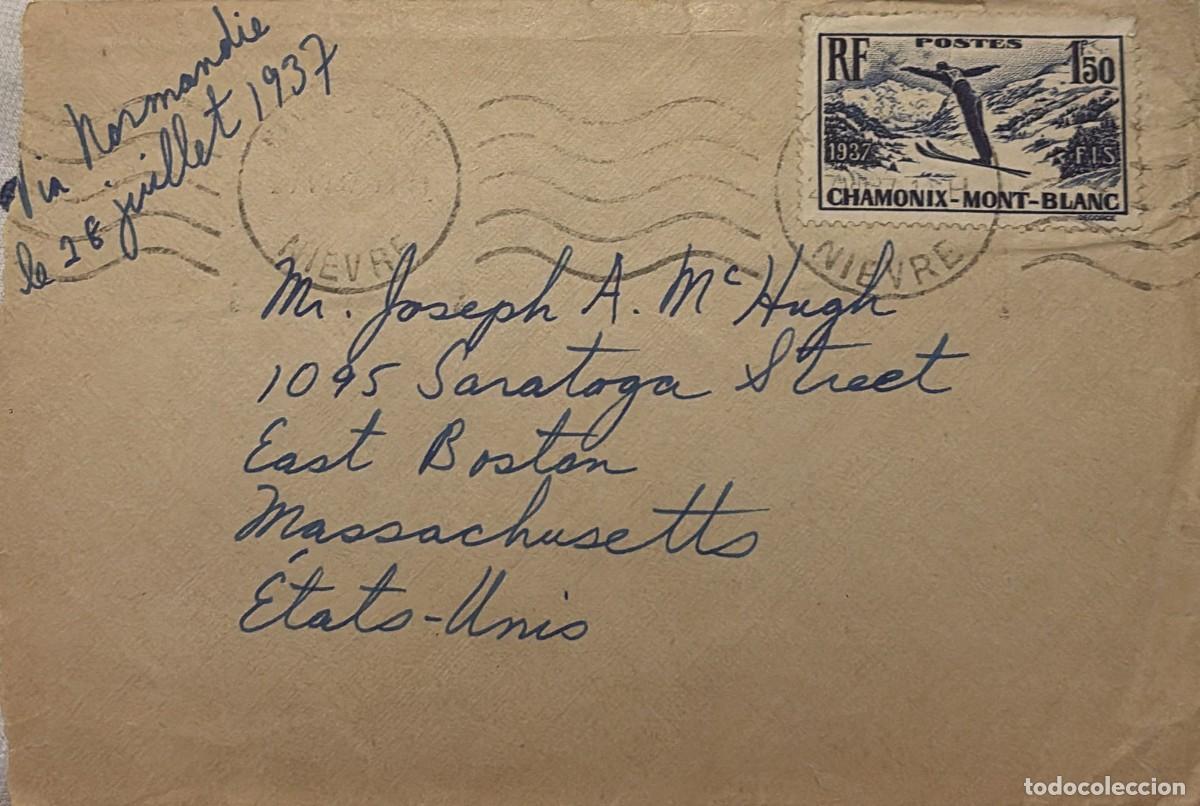 Via Normandie
le 28 juillet 1937
RF POSTES 1F50
1937 F.I.S
CHAMONIX-MONT-BLANC
DECORZE
NIEVRE
NIEVRE
Mr. Joseph A. McHugh
1095 Saratoga Street
East Boston
Massachusetts
États-Unis
todocoleccion